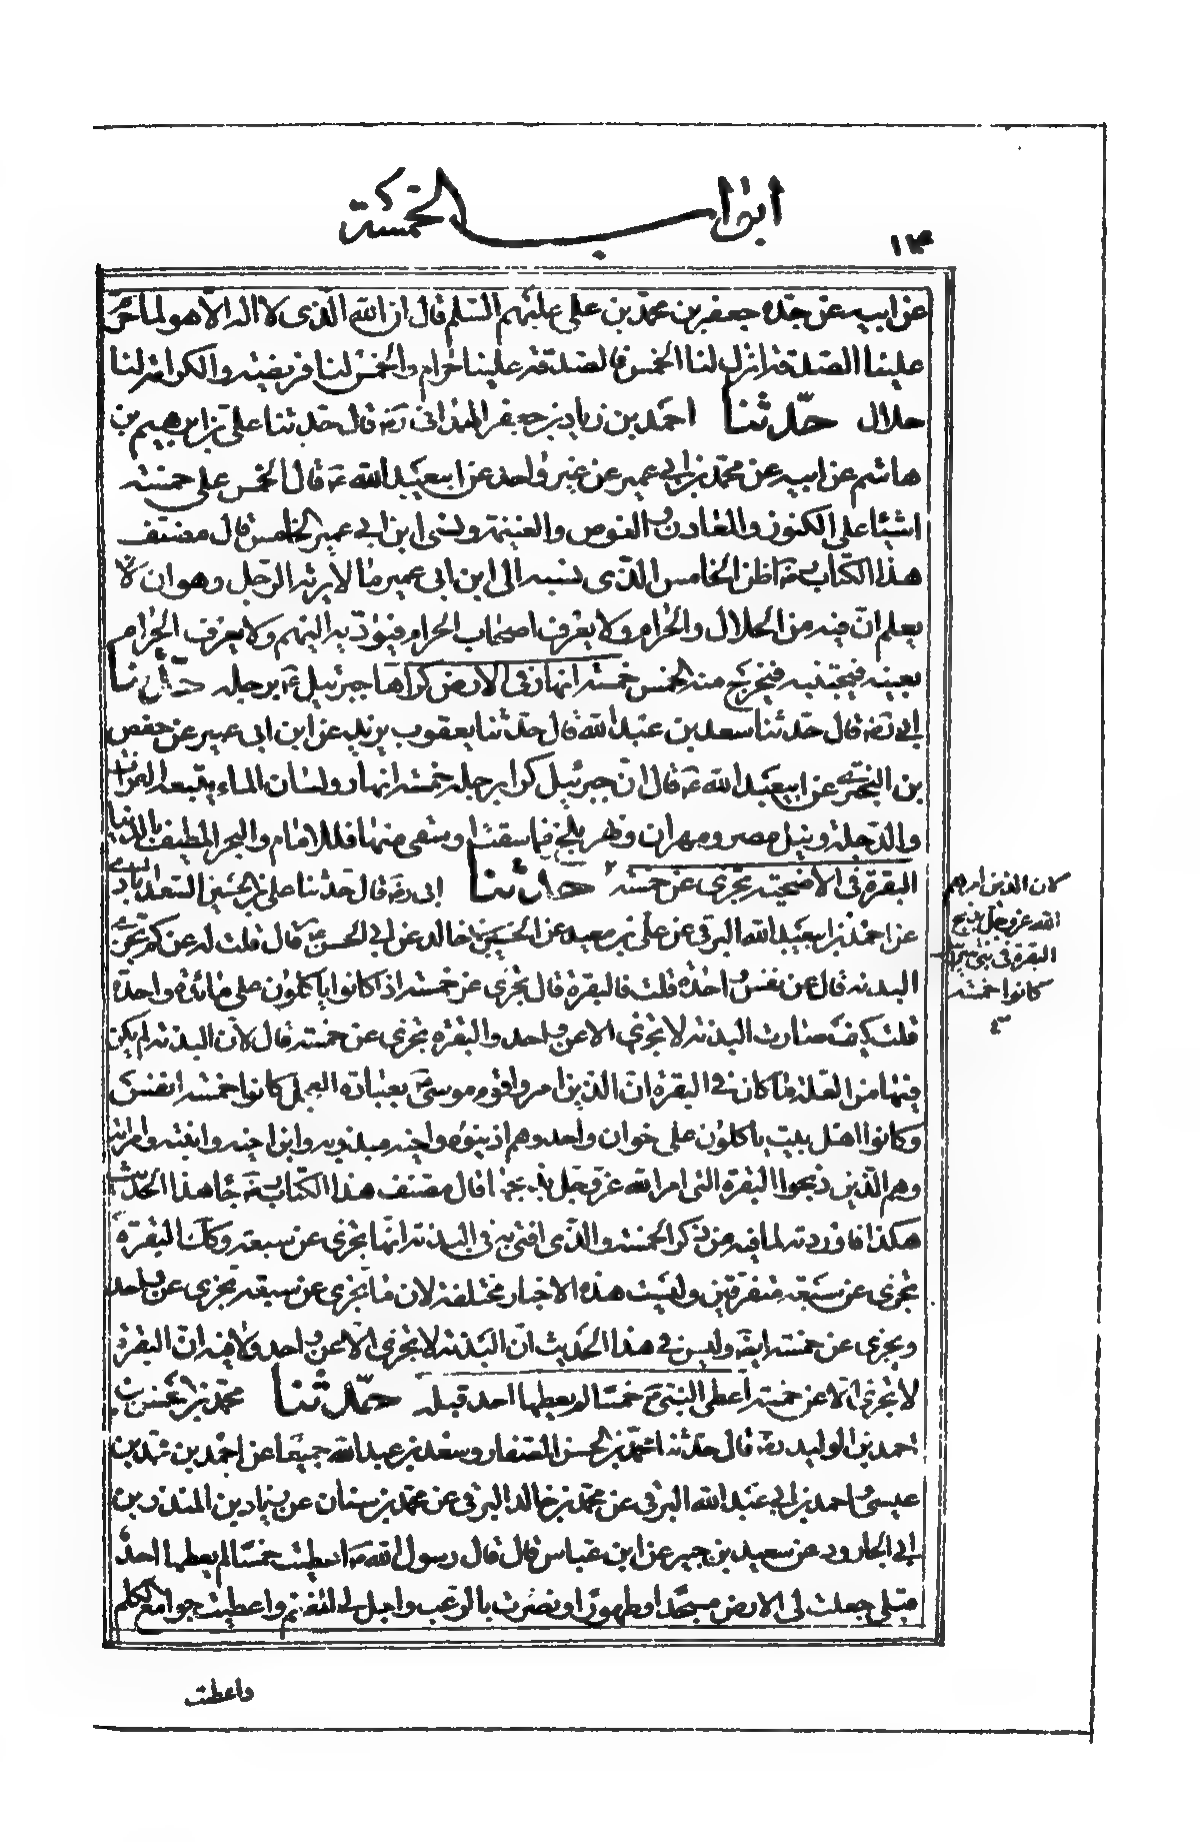 ابواب الخمسة
١٣٤
عن ابيه عن جده جعفر بن محمد بن علي عليهم السلم قال ان الله الذى لا اله الا هو لما حرم
علينا الصدقة انزل لنا الخمس فالصدقة علينا حرام والخمس لنا فريضة والكرامة لنا
حلال حدثنا احمد بن زياد بن جعفر الهمدانى رضه قال حدثنا على بن ابرهيم بن
هاشم عن ابيه عن محمد بن ابي عمير عن غير واحد عن ابيعبد الله ع قال الخمس على خمسة
اشياء على الكنوز والمعادن والغوص والغنيمة ونسى ابن ابي عمير الخامس قال مصنف
هذا الكتاب ره اظن الخامس الذى نسيه ابن ابى عمير مالا يرثه الرجل وهو ان لا
يعلم ان فيه من الحلال والحرام ولا يعرف اصحاب الحرام فيؤديه اليهم ولا يعرف الحرام
بعينه فيجتنبه فيخرج منه الخمس خمسة انهار فى الارض كراها جبرئيل ع برجله حدثنا
ابي رضه قال حدثنا سعد بن عبد الله قال حدثنا يعقوب بن يزيد عن ابن ابى عمير عن حفص
بن البخترى عن ابيعبد الله ع قال ان جبرئيل كرا برجله خمسة انهار ولسان الماء يتبعه الفرات
والدجلة ونيل مصر ومهران ونهر بلخ فما سقت او سقى منها فللامام والبحر المطيف بالدنيا
البقرة فى الاضحية تجزى عن خمسة حدثنا ابى رضه قال حدثنا على بن الحسين السعدابادى
عن احمد بن ابيعبد الله البرقى عن على بن معبد عن الحسين بن خالد عن ابي الحسن ع قال قلت له عن كم تجزى
البدنة قال عن نفس واحدة قلت فالبقرة قال تجزى عن خمسة اذا كانوا ياكلون على مائدة واحدة
قلت كيف صارت البدنة لا تجزى الا عن واحد والبقرة تجزى عن خمسة قال لان البدنة لم يكن
فيها من العلة ما كان في البقرة ان الذين امروا قوم موسى بعبادة العجل كانوا خمسة انفس
وكانوا اهل بيت ياكلون على خوان واحد وهم اذينوه واخيه ميذويه وابن اخيه وابنته وامراته
وهم الذين ذبحوا البقرة التى امر الله عز وجل بذبحها قال مصنف هذا الكتاب ره جاء هذا الحديث
هكذا فاوردته لما فيه من ذكر الخمسة والذى افتى به فى البدنة انها تجزى عن سبعة وكذلك البقرة
تجزى عن سبعة متفرقين وليست هذه الاخبار مختلفة لان ما تجزى عن سبعة تجزى عن واحد
وتجزى عن خمسة ايضا وليس في هذا الحديث ان البدنة لا تجزى الا عن واحد ولا فيه ان البقرة
لا تجزى الا عن خمسة اعطى النبى ص خمسا لم يعطها احد قبله حدثنا محمد بن الحسن بن
احمد بن الوليد رضه قال حدثنا محمد بن الحسن الصفار وسعد بن عبد الله جميعا عن احمد بن محمد بن
عيسى واحمد بن ابي عبد الله البرقى عن محمد بن خالد البرقى عن محمد بن سنان عن زياد بن المنذر بن
ابي الجارود عن سعيد بن جبير عن ابن عباس قال قال رسول الله ص اعطيت خمسا لم يعطها احد
قبلى جعلت لى الارض مسجدا وطهورا ونصرت بالرعب واحل لى المغنم واعطيت جوامع الكلم
كان الذين امرهم
الله عز وجل بذبح
البقرة في بنى
كانوا خمسة
واعطيت